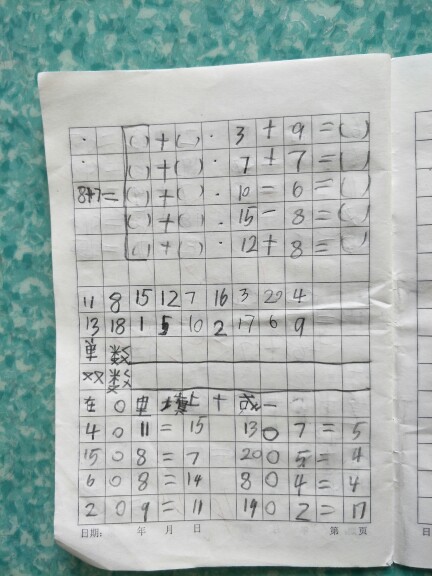 · ( ) + ( ) · 3 + 9 = ( )
· ( ) + ( ) · 7 + 7 = ( )
8+7= ( ) + ( ) · 10 = 6 = ( )
( ) + ( ) · 15 - 8 = ( )
( ) + ( ) · 12 + 8 = ( )
11 8 15 12 7 16 3 20 4
13 18 1 5 10 2 17 6 9
单数
双数
在○里填上十或一
4 ○ 11 = 15 13 ○ 7 = 5
15 ○ 8 = 7 20 ○ 5 = 4
6 ○ 8 = 14 8 ○ 4 = 4
2 ○ 9 = 11 19 ○ 2 = 17
日期: 年 月 日 第 页
日